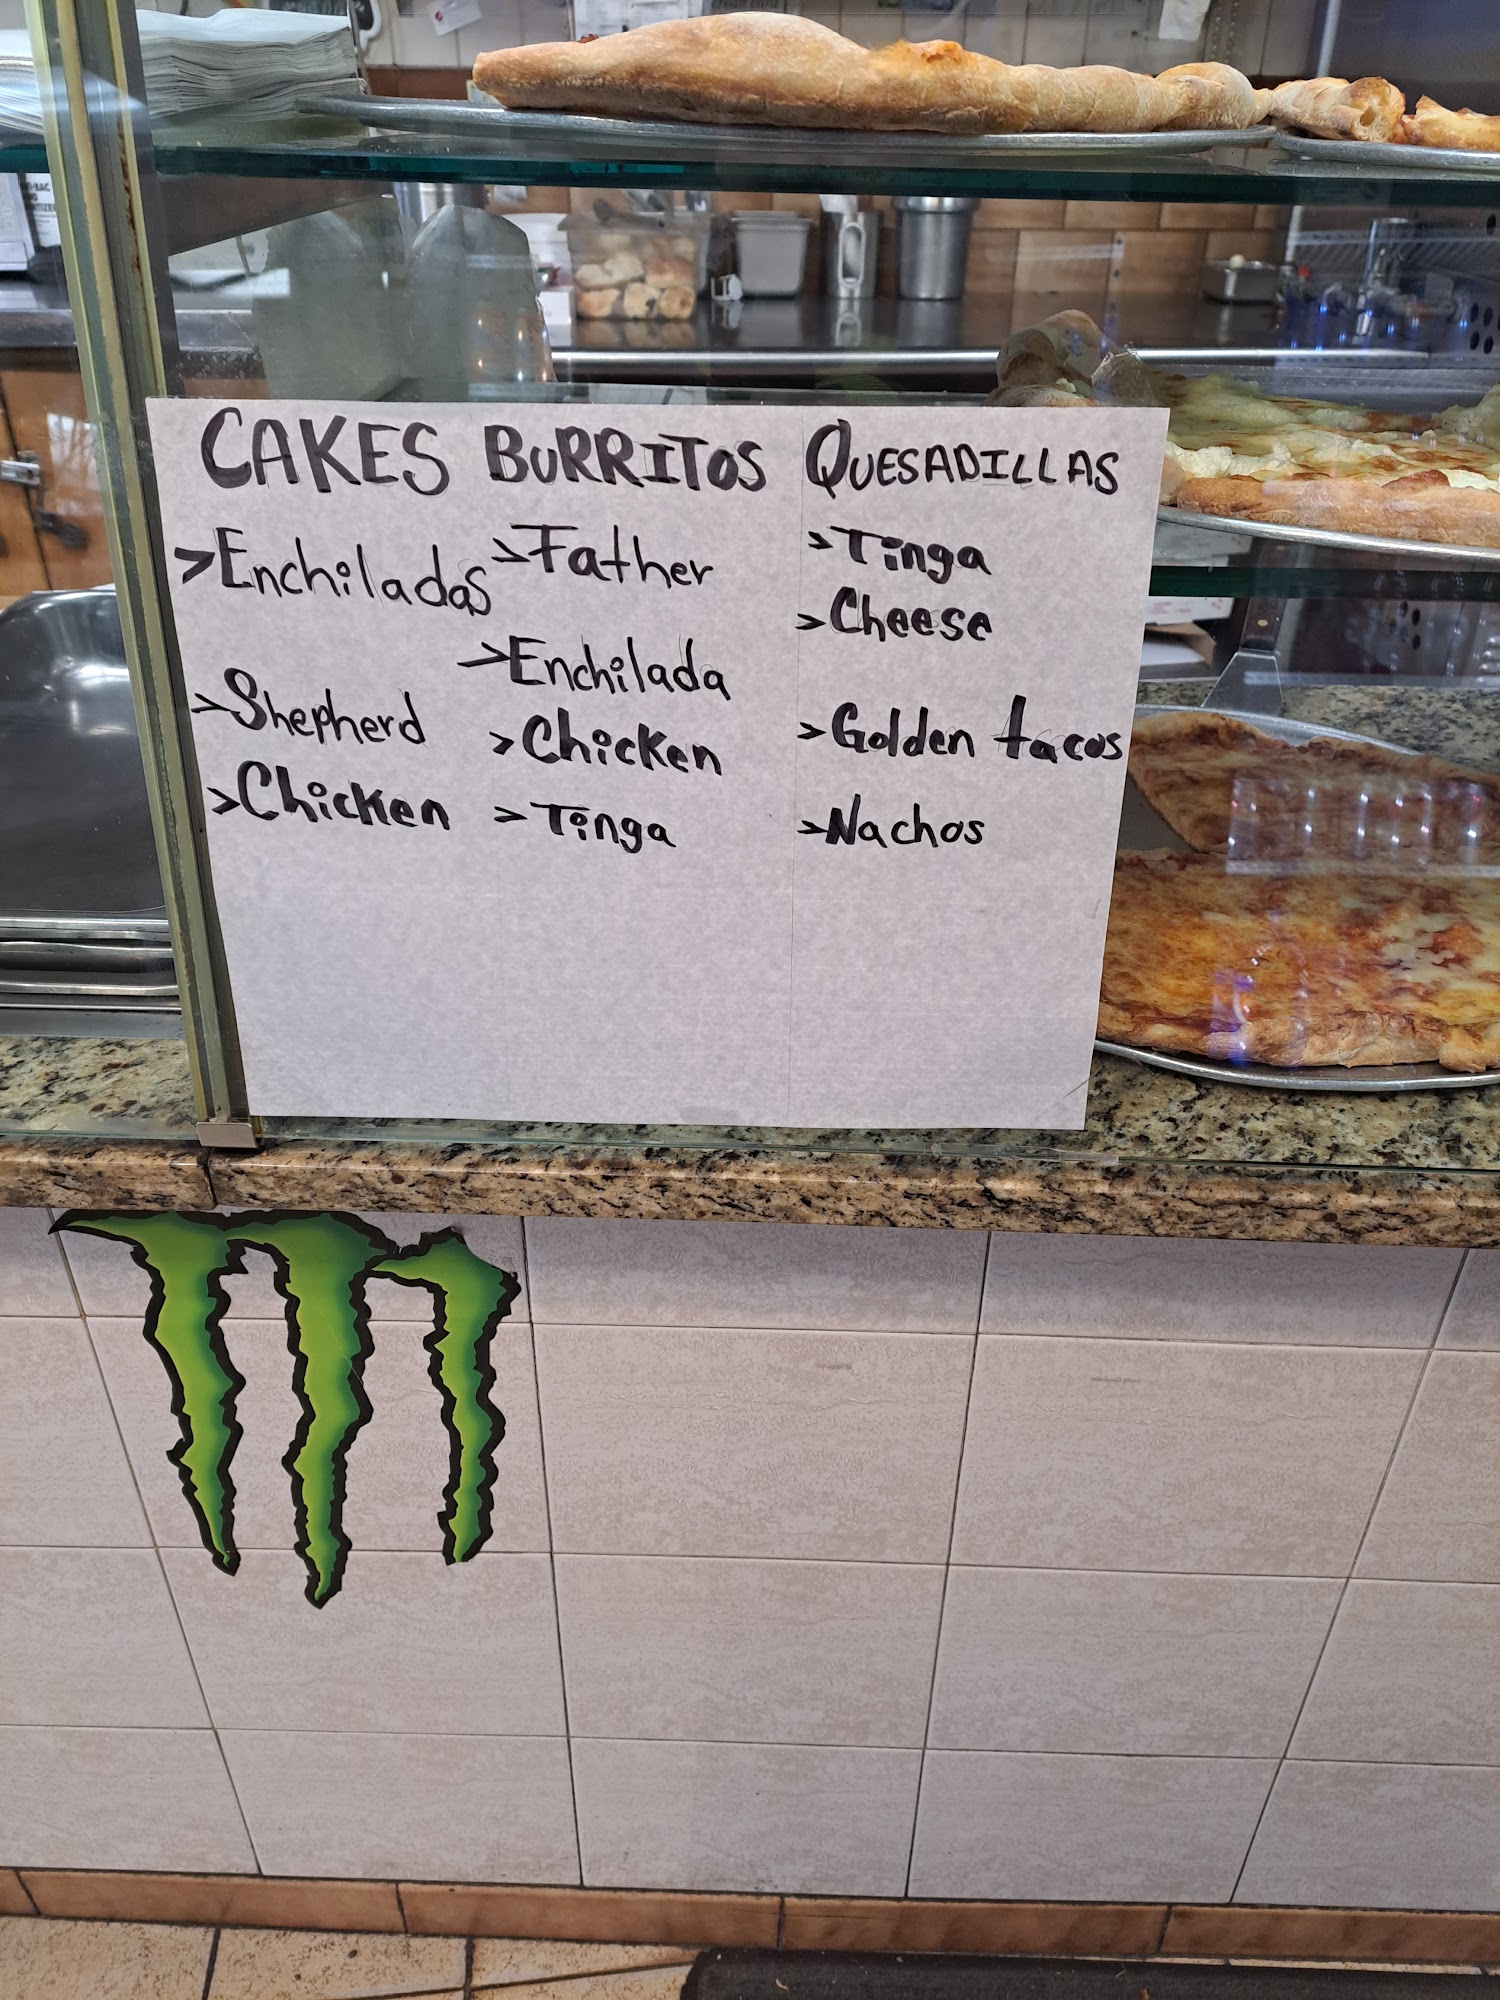 CAKES
>Enchiladas
>Shepherd
>Chicken
BURRITOS
>Father
>Enchilada
>Chicken
>Tinga
QUESADILLAS
>Tinga
>Cheese
>Golden tacos
>Nachos